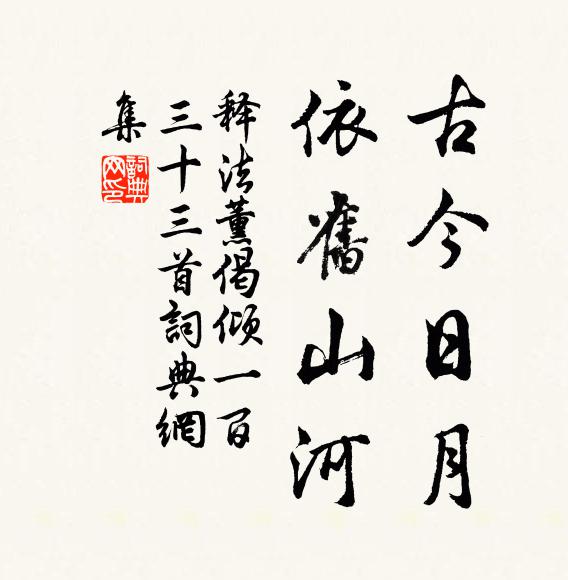 古今日月
依舊山河
释法薰偈倾一百
三十三首詞典網
集
詞典网印